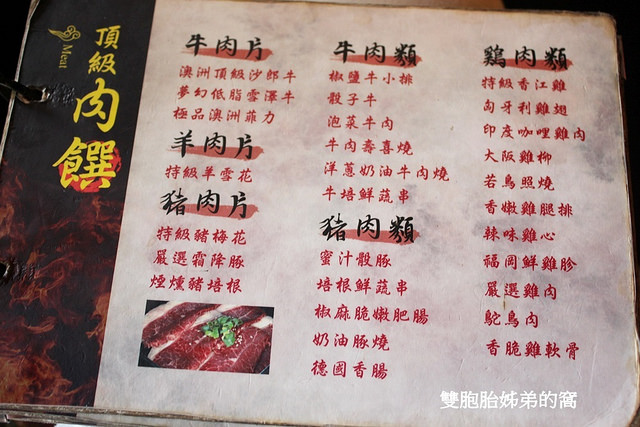 頂級肉饌
Meat
牛肉片
澳洲頂級沙郎牛
夢幻低脂雪澤牛
極品澳洲菲力
羊肉片
特級羊雪花
豬肉片
特級豬梅花
嚴選霜降豚
煙燻豬培根
牛肉類
椒鹽牛小排
骰子牛
泡菜牛肉
牛肉壽喜燒
洋蔥奶油牛肉燒
牛培鮮蔬串
豬肉類
蜜汁骰豚
培根鮮蔬串
椒麻脆嫩肥腸
奶油豚燒
德國香腸
鷄肉類
特級香江雞
匈牙利雞翅
印度咖哩雞肉
大阪雞柳
若鳥照燒
香嫩雞腿排
辣味雞心
福岡鮮雞胗
嚴選雞肉
鴕鳥肉
香脆雞軟骨
雙胞胎姊弟的窩